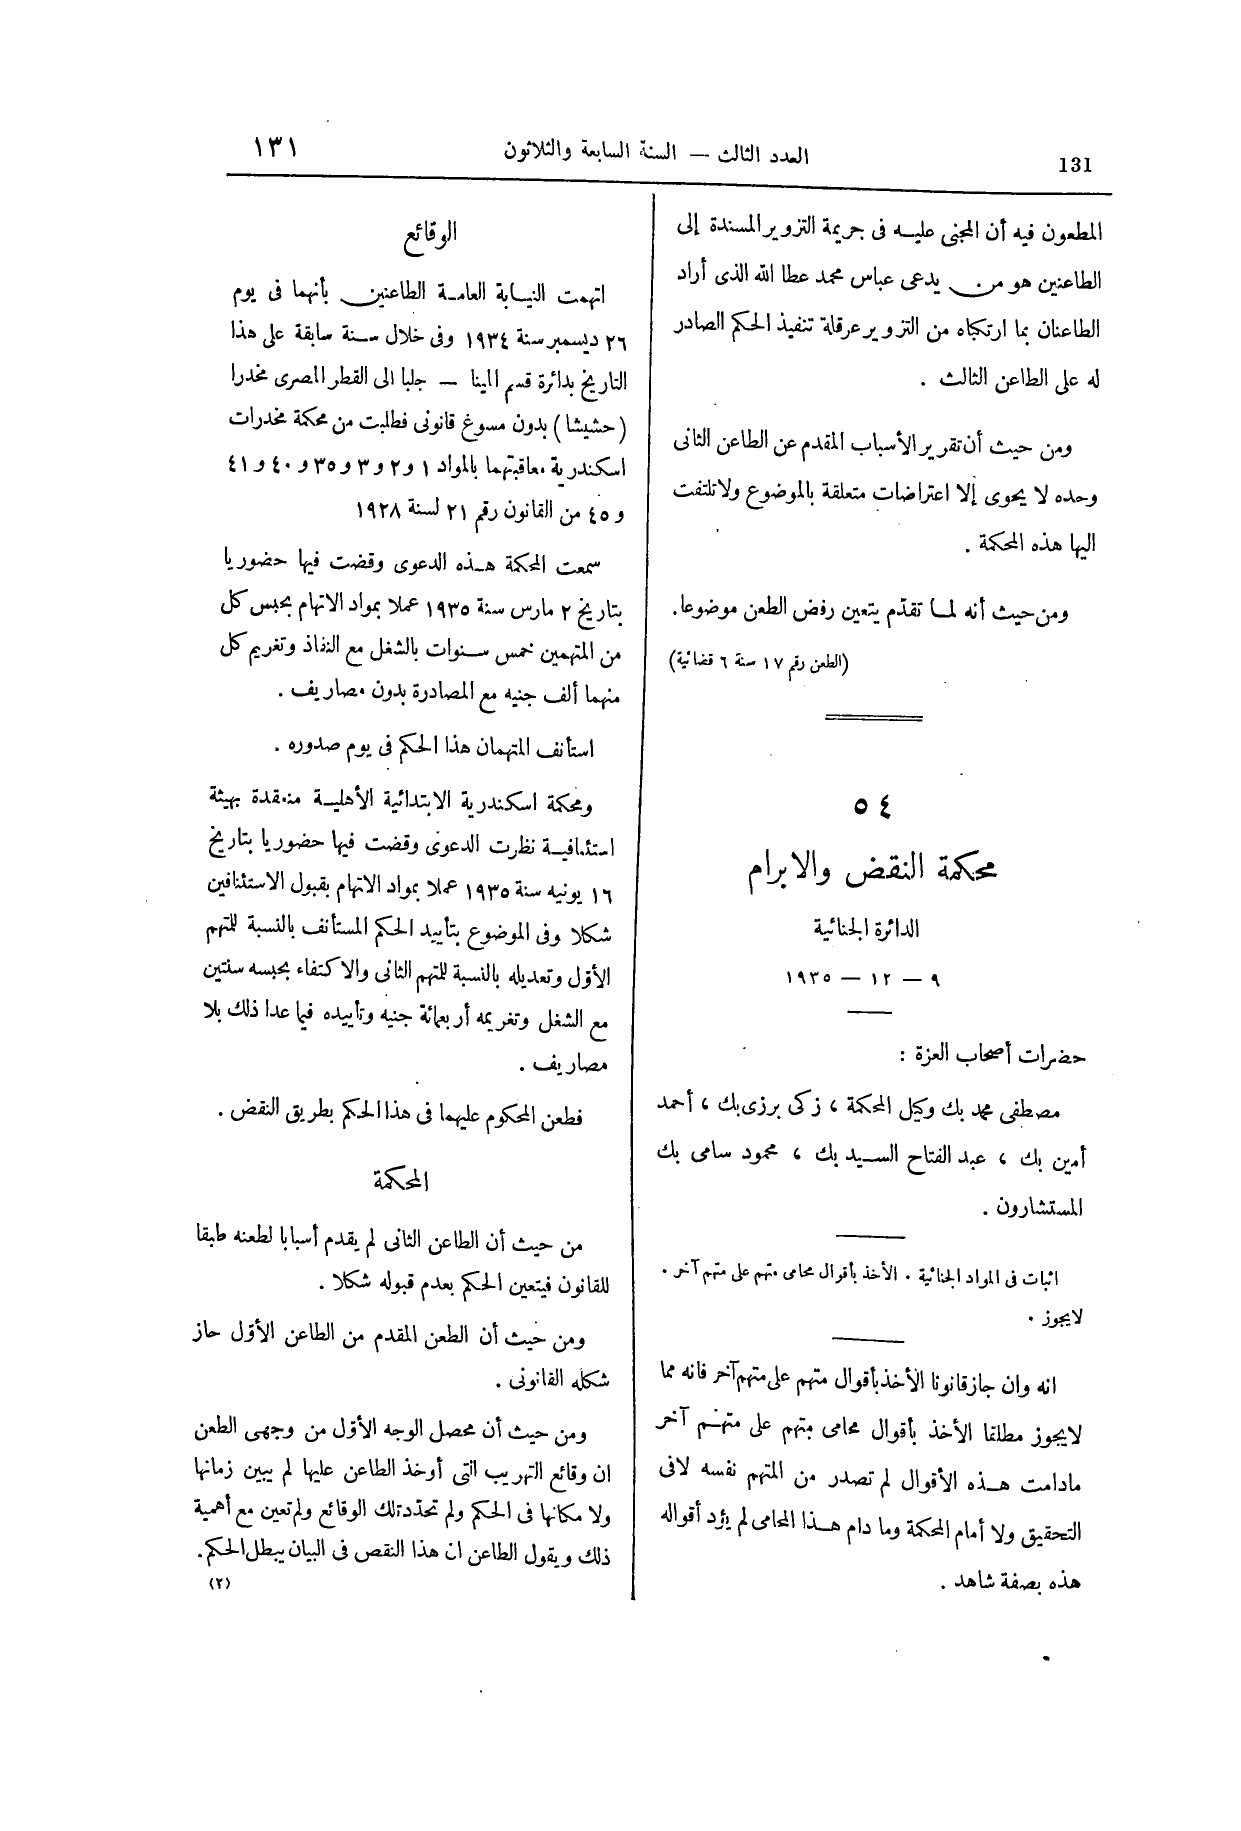 131
العدد الثالث — السنة السابعة والثلاثون
١٣١
المطعون فيه أن المجنى عليه فى جريمة التزوير المسندة إلى
الطاعنين هو من يدعى عباس محمد عطا الله الذى أراد
الطاعنان بما ارتكباه من التزوير عرقلة تنفيذ الحكم الصادر
له على الطاعن الثالث .
ومن حيث أن تقرير الأسباب المقدم عن الطاعن الثانى
وحده لا يحوى إلا اعتراضات متعلقة بالموضوع ولا تلتفت
اليها هذه المحكمة .
ومن حيث أنه لما تقدّم يتعين رفض الطعن موضوعا.
(الطعن رقم ١٧ سنة ٦ قضائية)
٥٤
محكمة النقض والابرام
الدائرة الجنائية
٩ — ١٢ — ١٩٣٥
حضرات أصحاب العزة :
مصطفى محمد بك وكيل المحكمة ، زكى برزى بك ، أحمد
أمين بك ، عبد الفتاح السيد بك ، محمود سامى بك
المستشارون .
اثبات فى المواد الجنائية . الأخذ بأقوال محامى متهم على متهم آخر .
لايجوز .
انه وان جاز قانونا الأخذ بأقوال متهم على متهم آخر فانه مما
لايجوز مطلقا الأخذ بأقوال محامى متهم على متهم آخر
مادامت هذه الأقوال لم تصدر من المتهم نفسه لا فى
التحقيق ولا أمام المحكمة وما دام هذا المحامى لم يؤد أقواله
هذه بصفة شاهد .
الوقائع
اتهمت النيابة العامة الطاعنين بأنهما فى يوم
٢٦ ديسمبر سنة ١٩٣٤ وفى خلال سنة سابقة على هذا
التاريخ بدائرة قسم المينا — جلبا الى القطر المصرى مخدرا
(حشيشا) بدون مسوغ قانونى فطلبت من محكمة مخدرات
اسكندرية معاقبتهما بالمواد ١ و ٢ و ٣ و ٣٥ و ٤٠ و ٤١
و ٤٥ من القانون رقم ٢١ لسنة ١٩٢٨
سمعت المحكمة هذه الدعوى وقضت فيها حضوريا
بتاريخ ٢ مارس سنة ١٩٣٥ عملا بمواد الاتهام بحبس كل
من المتهمين خمس سنوات بالشغل مع النفاذ وتغريم كل
منهما ألف جنيه مع المصادرة بدون مصاريف .
استأنف المتهمان هذا الحكم فى يوم صدوره .
ومحكمة اسكندرية الابتدائية الأهلية منعقدة بهيئة
استئنافية نظرت الدعوى وقضت فيها حضوريا بتاريخ
١٦ يونيه سنة ١٩٣٥ عملا بمواد الاتهام بقبول الاستئنافين
شكلا وفى الموضوع بتأييد الحكم المستأنف بالنسبة للمتهم
الأوّل وتعديله بالنسبة للمتهم الثانى والاكتفاء بحبسه سنتين
مع الشغل وتغريمه أربعمائة جنيه وتأييده فيما عدا ذلك بلا
مصاريف .
فطعن المحكوم عليهما فى هذا الحكم بطريق النقض .
المحكمة
من حيث أن الطاعن الثانى لم يقدم أسبابا لطعنه طبقا
للقانون فيتعين الحكم بعدم قبوله شكلا .
ومن حيث أن الطعن المقدم من الطاعن الأوّل حاز
شكله القانونى .
ومن حيث أن محصل الوجه الأوّل من وجهى الطعن
ان وقائع التهريب التى أوخذ الطاعن عليها لم يبين زمانها
ولا مكانها فى الحكم ولم تحدّد تلك الوقائع ولم تعين مع أهمية
ذلك ويقول الطاعن ان هذا النقص فى البيان يبطل الحكم.
(٢)